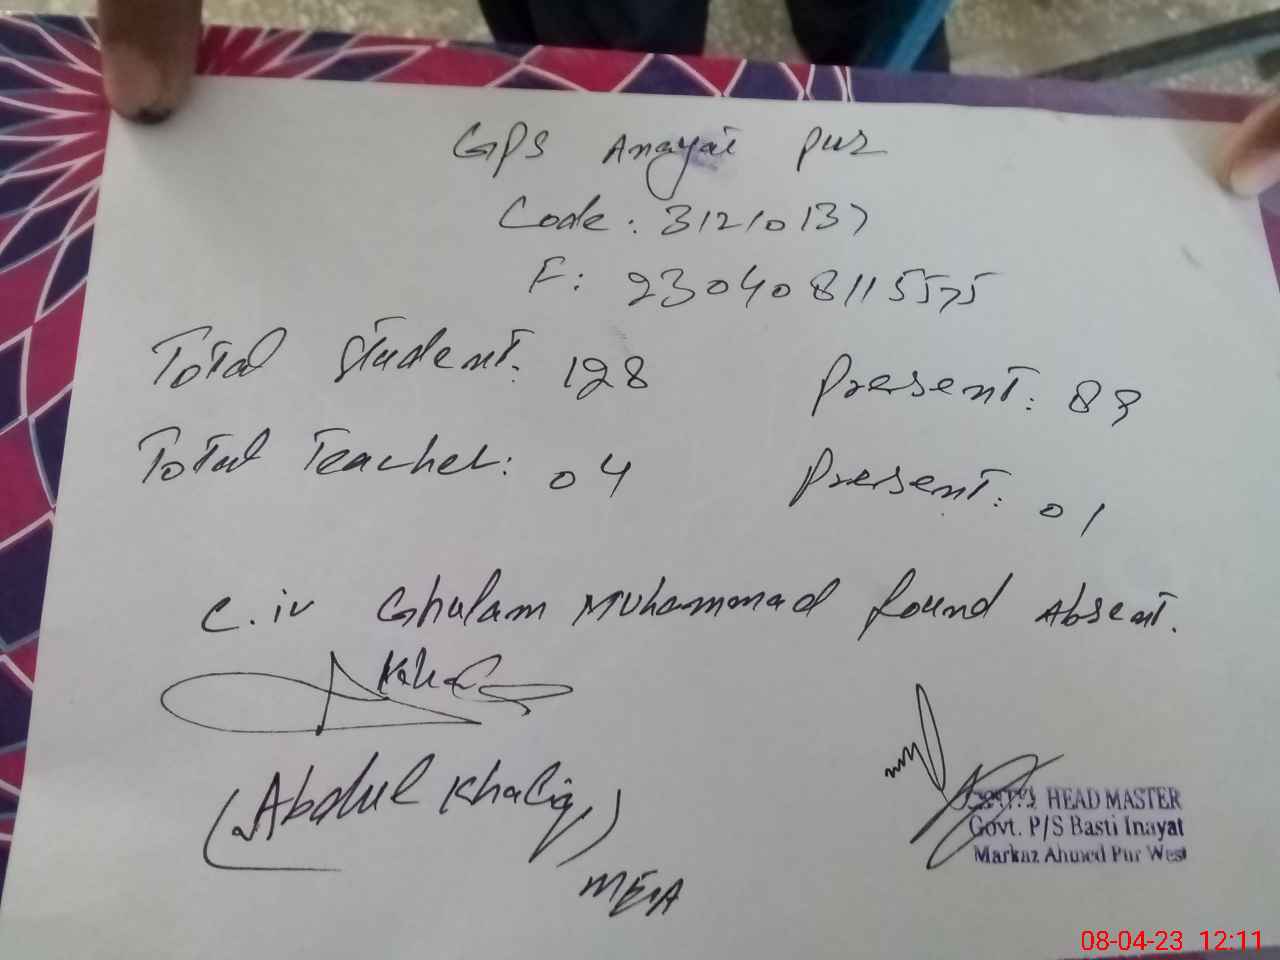 GPS Anayat Pur
Code: 31210137
F: 230408115575
Total Student: 128 Present: 89
Total Teacher: 04 Present: 01
C.iv Ghulam Muhammad found Absent.
Khal
(Abdul Khaliq)
MEA
HEAD MASTER
Govt. P/S Basti Inayat
Markaz Ahmed Pur West
08-04-23 12:11